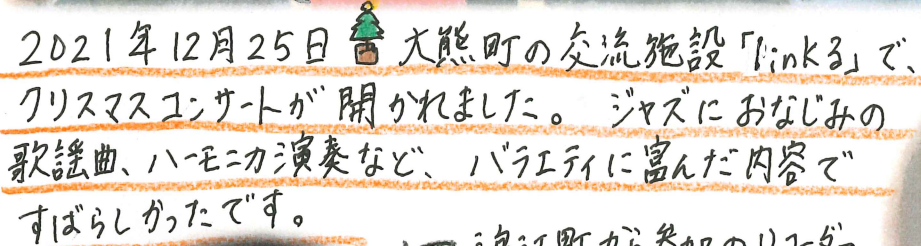 2021年12月25日 大熊町の交流施設「linkる」で、
クリスマスコンサートが開かれました。 ジャズにおなじみの
歌謡曲、ハーモニカ演奏など、バラエティに富んだ内容で
すばらしかったです。
浪江町から参加のリコーダー